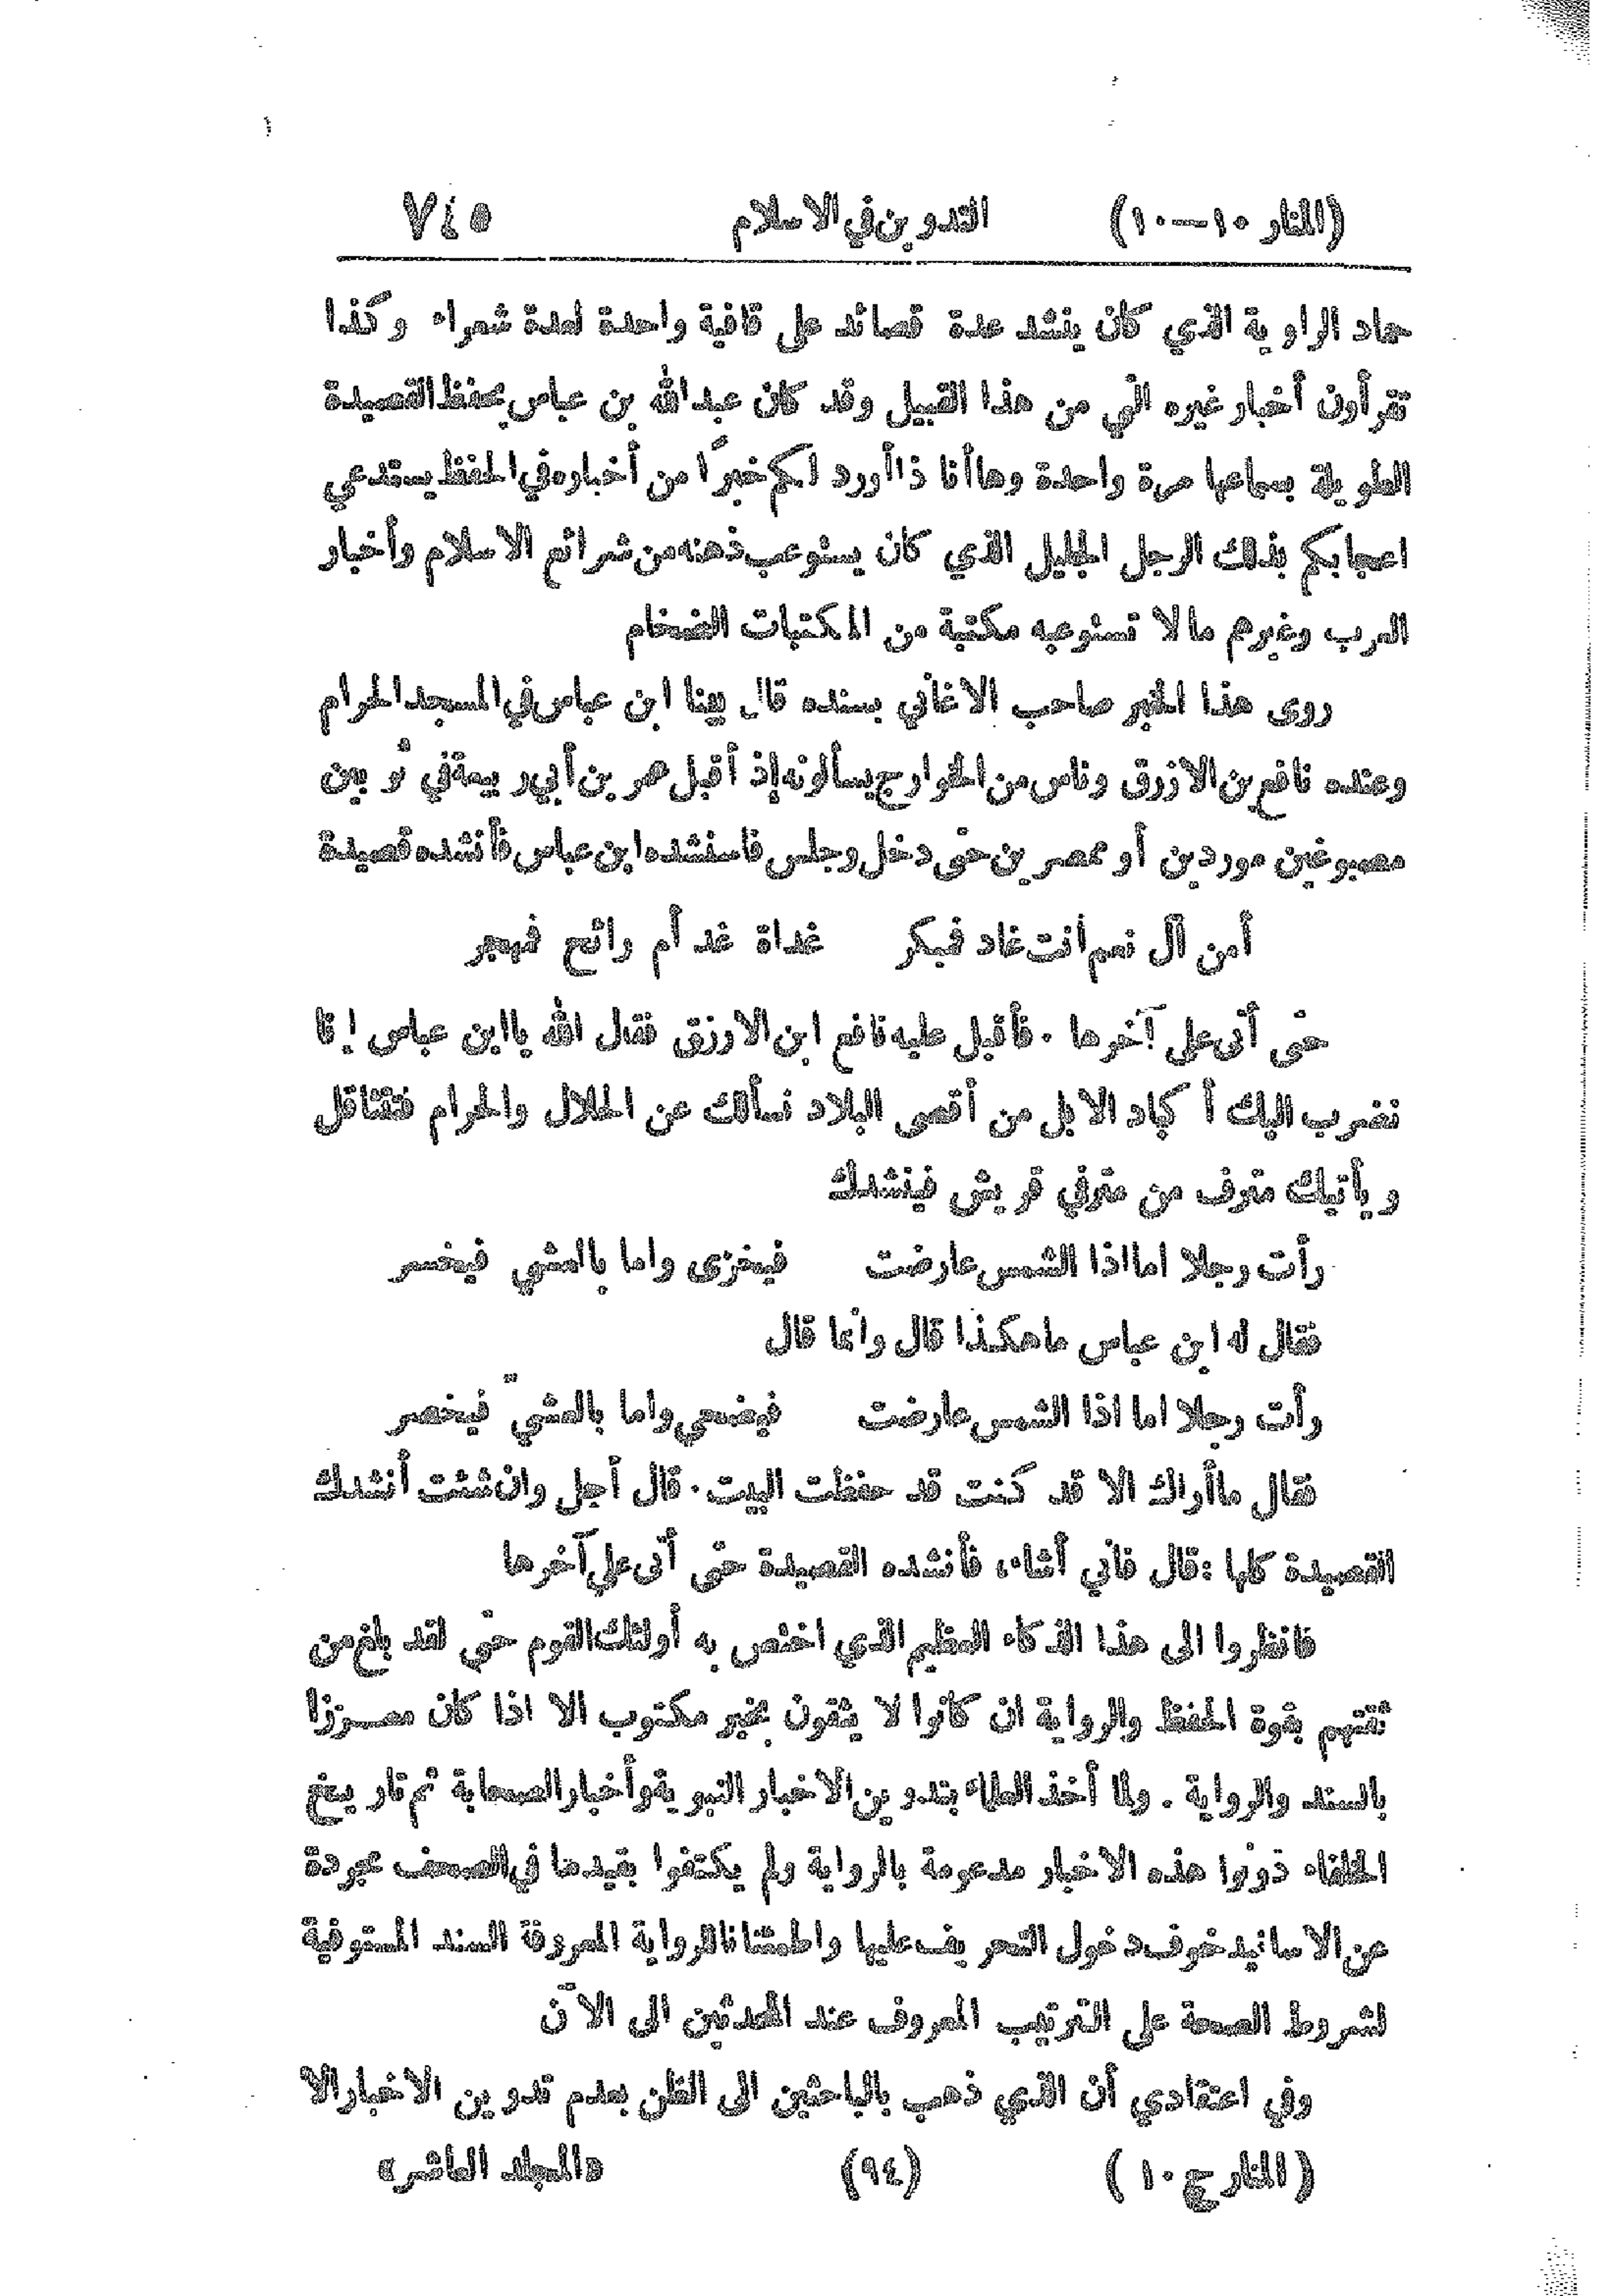 (المنار ١٠—١٠) التدوين في الاسلام ٧٤٥
حماد الراوية الذي كان ينشد عدة قصائد على قافية واحدة لعدة شعراء وكذا
تقرأون أخبار غيره التي من هذا القبيل وقد كان عبد الله بن عباس يحفظ القصيدة
الطويلة بسماعها مرة واحدة وهاأنا ذا أورد لكم خبرًا من أخباره في الحفظ يستدعي
اعجابكم بذلك الرجل الجليل الذي كان يستوعب ذهنه من شرائع الاسلام وأخبار
العرب وغيرهم ما لا تستوعبه مكتبة من المكتبات الضخام
روى هذا الخبر صاحب الاغاني بسنده قال بينا ابن عباس في المسجد الحرام
وعنده نافع بن الازرق وناس من الخوارج يسألونه إذ أقبل عمر بن أبي ربيعة في ثوبين
مصبوغين موردين أو ممصرين حتى دخل وجلس فاستنشده ابن عباس فأنشده قصيدة
أمن آل نعم أنت غاد فمبكر غداة غد أم رائح فمهجر
حتى أتى على آخرها . فأقبل عليه نافع ابن الازرق فقال الله يا ابن عباس ! انا
نضرب اليك أكباد الابل من أقصى البلاد نسألك عن الحلال والحرام فتتثاقل
ويأتيك مترف من مترفي قريش فينشدك
رأت رجلا اما اذا الشمس عارضت فيخزى واما بالعشي فيخسر
فقال له ابن عباس ما هكذا قال وانما قال
رأت رجلا اما اذا الشمس عارضت فيضحي واما بالعشيّ فيخصر
فقال ما أراك الا قد كنت قد حفظت البيت . قال أجل وان شئت أنشدك
القصيدة كلها : قال فاني أشاء، فأنشده القصيدة حتى أتى على آخرها
فانظروا الى هذا الذكاء العظيم الذي اختص به أولئك القوم حتى لقد بلغ من
ثقتهم بقوة الحفظ والرواية ان كانوا لا يثقون بخبر مكتوب الا اذا كان معـززا
بالسند والرواية . ولما أخذ العلماء بتدوين الاخبار النبوية وأخبار الصحابة ثم تاريخ
الخلفاء دونوا هذه الاخبار مدعومة بالرواية ولم يكتفوا بقيدها في الصحف مجردة
عن الاسانيد خوف دخول التحريف عليها واطمئنانا للرواية المعروفة السند المستوفية
لشروط الصحة على الترتيب المعروف عند المحدثين الى الآن
وفي اعتقادي أن الذي ذهب بالباحثين الى الظن بعدم تدوين الاخبار الا
(المنار ج ١٠) (٩٤) «المجلد العاشر»